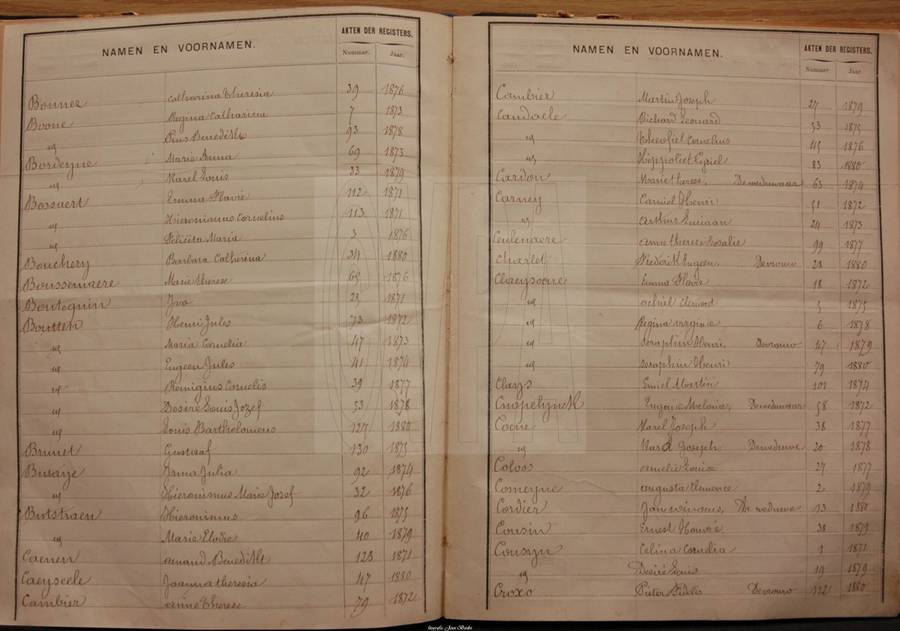 NAMEN EN VOORNAMEN. AKTEN DER REGISTERS.
Nummer. Jaar.
Bonnez Catharina Theresia 39 1876
Boone Regina Catharina 7 1873
" Pius Benedikt 93 1878
Bordeyne Marie Anna 69 1873
" Karel Louis 33 1879
Bossaert Emma Flavie 112 1871
" Hieronimus Cornelius 113 1871
" Felicita Maria 3 1876
Bouchery Barbara Catherina 34 1880
Boussemaere Marie Therese 65 1876
Boutequin Ivo 25 1871
Boutten Henri Jules 73 1872
" Maria Cornelia 47 1873
" Eugeen Jules 41 1874
" Remigius Cornelis 39 1877
" Desiré Louis Jozef 53 1878
" Louis Bartholomeus 127 1880
Brunet Gustaaf 130 1875
Busaije Irma Julia 92 1874
" Hieronismus Marie Josef 32 1876
Butstraen Hieronimus 96 1875
" Marie Elodie 40 1879
Caenen Amand Benedikt 123 1871
Caeyseele Joanna theresia 47 1880
Cambier Anne Therese 79 1872
NAMEN EN VOORNAMEN. AKTEN DER REGISTERS.
Nummer. Jaar.
Cambier Martin Joseph 27 1879
Candaele Richard Leonard 53 1875
" Theofiel Cornelius 45 1876
" Hippoliet Cyriel 83 1880
Cardon Marie therese, De weduwaar 63 1874
Carney Camiel Henri 51 1872
" Arthur 24 1873
Ceulenaere Anna therese Rosalie 99 1877
Charlet Eugeen, De vrouw 21 1880
Claeysoone Emma Flavie 18 1872
" Achiel Clement 5 1875
" Regina virginie 6 1878
" Seraphin Henri, De vrouw 47 1879
" Seraphin Henri 79 1880
Clays Emiel Martin 101 1874
Eugene Melanie, De weduwaar 58 1872
Coene Karel Joseph 38 1877
" Karel Joseph De weduwe 20 1878
Coloos Amelie Louise 27 1877
Comeyne Augusta Clemence 2 1879
Cordier Jan De weduwe 13 1880
Cousin Ernest Honoré 38 1879
Cousyn Celina Cornelia 1 1871
" Desiré Louis 19 1879
Croxo Pieter Fidelis De vrouw 112 1880